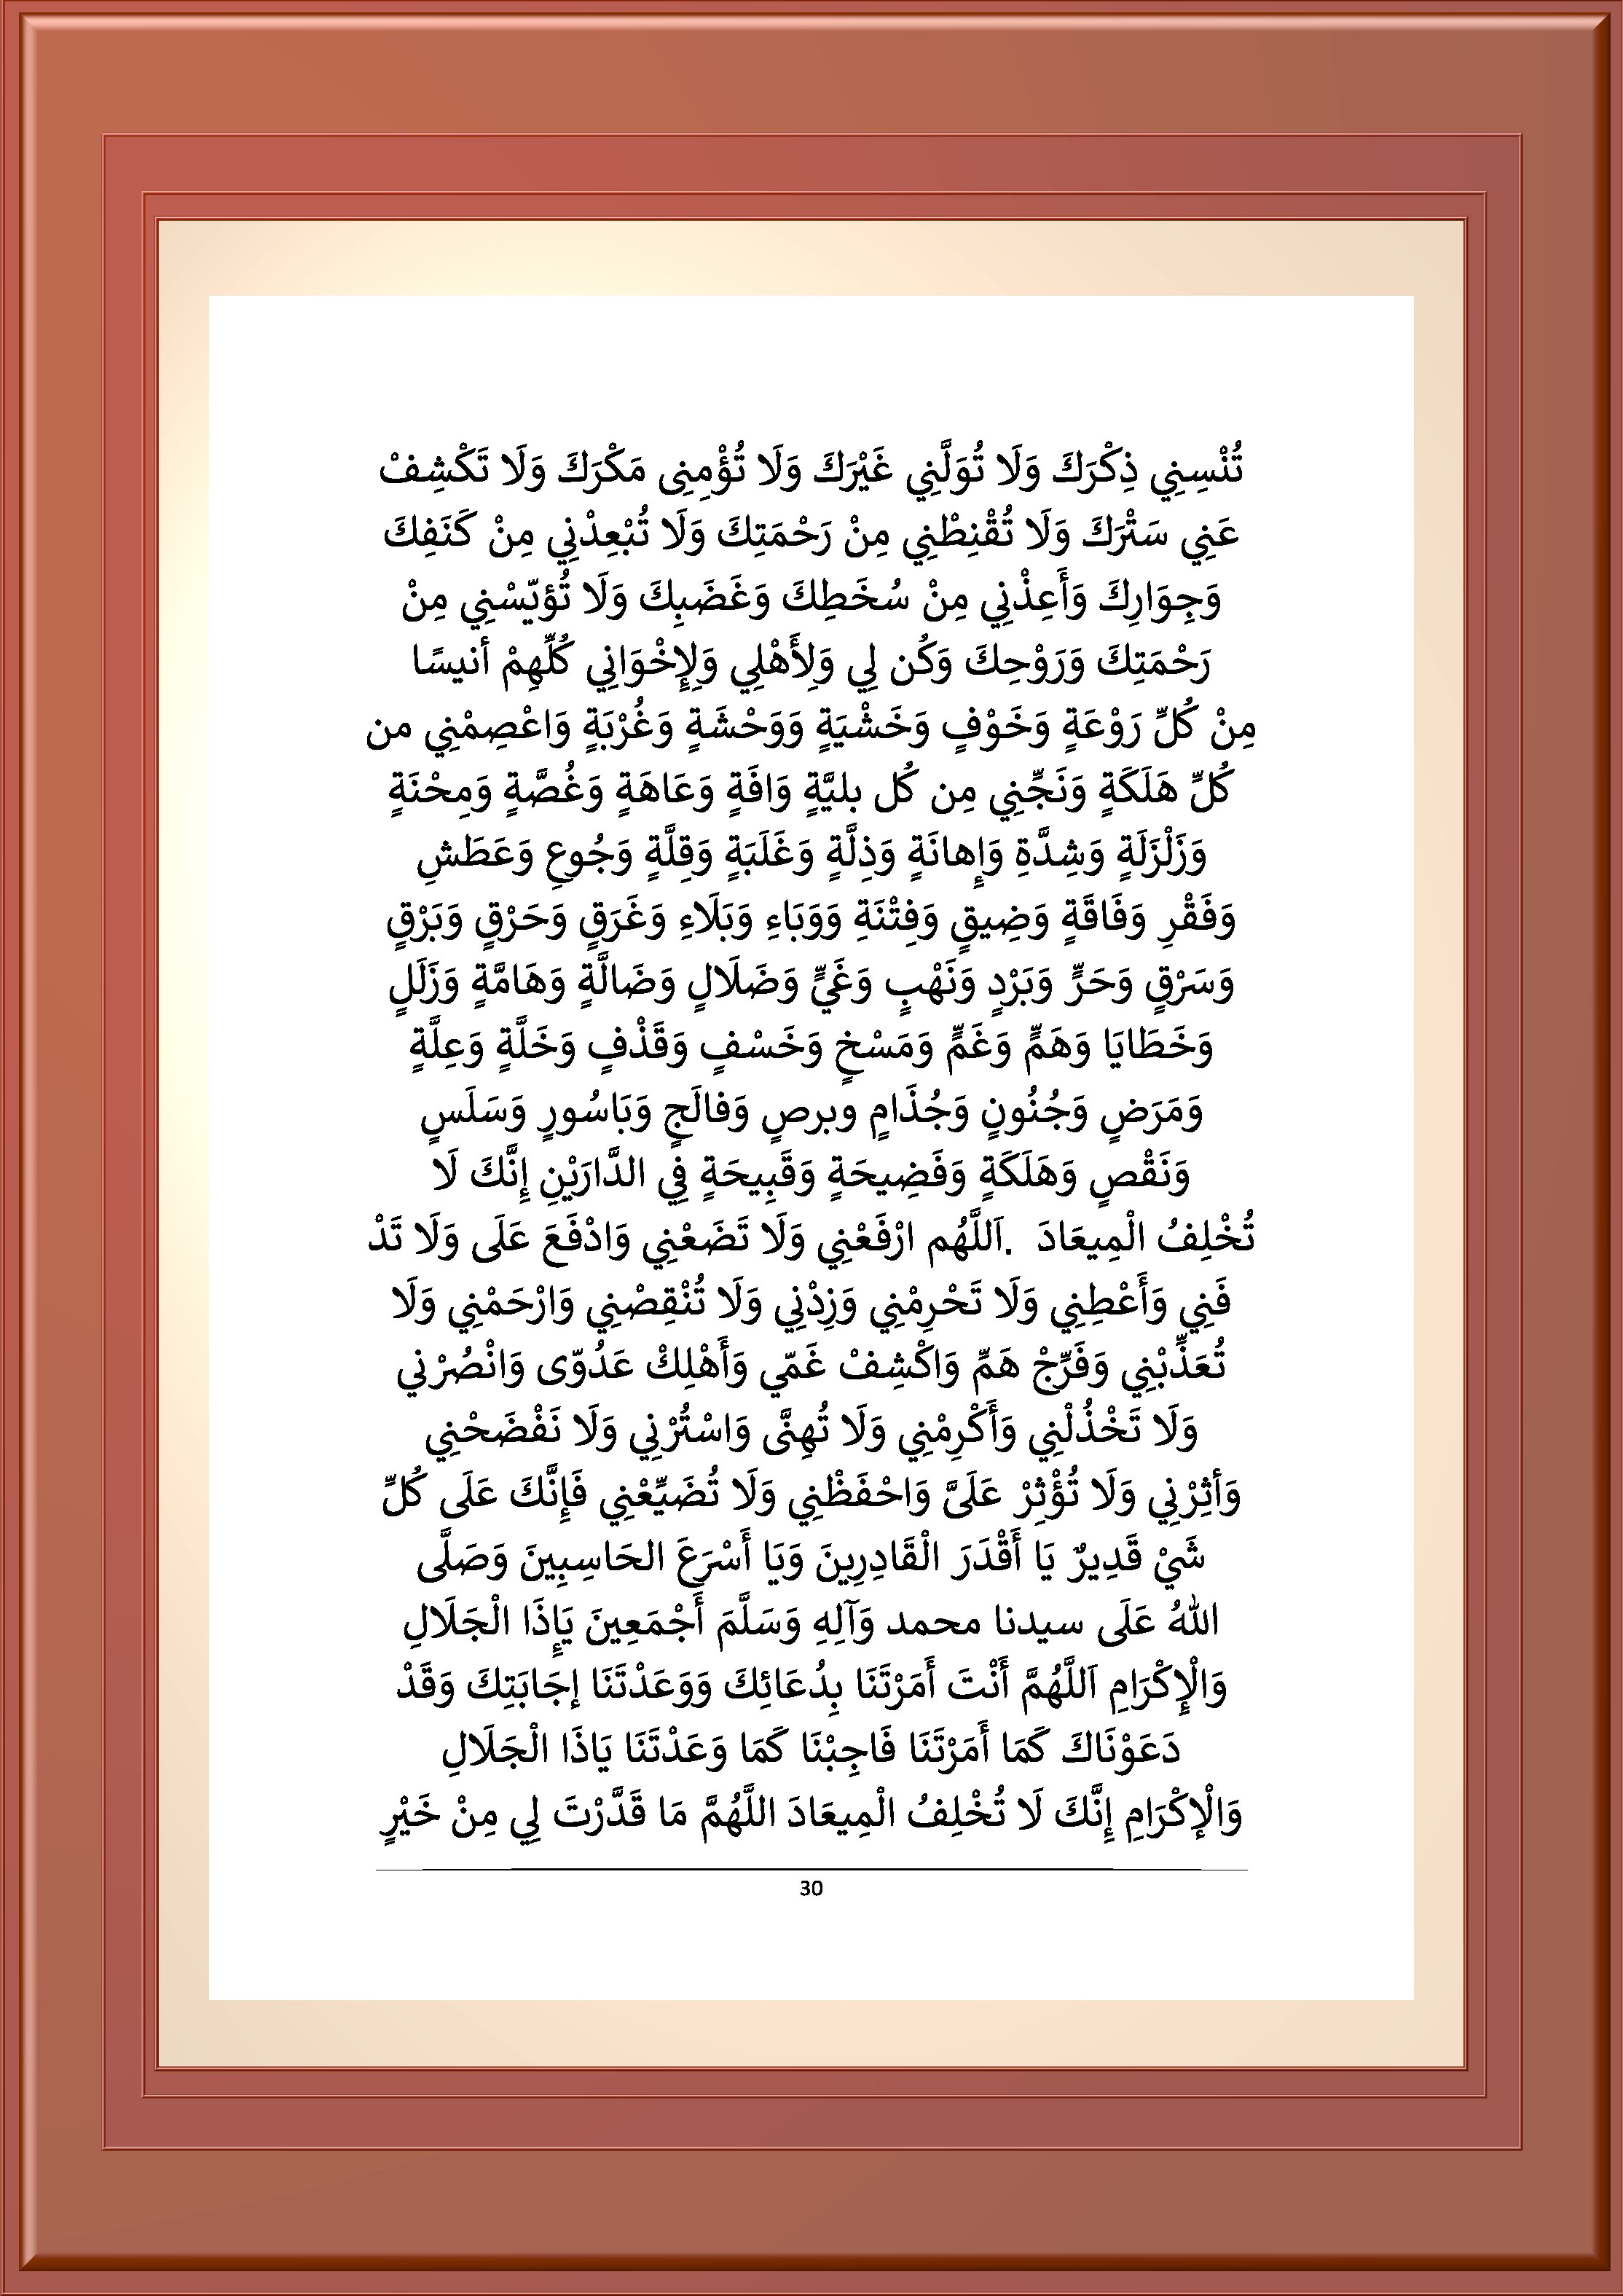 تُنْسِنِي ذِكْرَكَ وَلَا تُوَلَّنِي غَيْرَكَ وَلَا تُؤْمِنِى مَكْرَكَ وَلَا تَكْشِفْ
عَنِي سَتْرَكَ وَلَا تُقْنِطْنِي مِنْ رَحْمَتِكَ وَلَا تُبْعِدْنِي مِنْ كَنَفِكَ
وَجِوَارِكَ وَأَعِذْنِي مِنْ سُخَطِكَ وَغَضَبِكَ وَلَا تُؤيّسْنِي مِنْ
رَحْمَتِكَ وَرَوْحِكَ وَكُن لِي وَلِأَهْلِي وَلِإِخْوَانِي كُلِّهِمْ أنيسًا
مِنْ كُلِّ رَوْعَةٍ وَخَوْفٍ وَخَشْيَةٍ وَوَحْشَةٍ وَغُرْبَةٍ وَاعْصِمْنِي من
كُلِّ هَلَكَةٍ وَنَجِّنِي مِن كُل بليَّةٍ وَافَةٍ وَعَاهَةٍ وَغُصَّةٍ وَمِحْنَةٍ
وَزَلْزَلَةٍ وَشِدَّةِ وَإِهانَةٍ وَذِلَّةٍ وَغَلَبَةٍ وَقِلَّةٍ وَجُوعِ وَعَطَشِ
وَفَقْرِ وَفَاقَةٍ وَضِيقٍ وَفِتْنَةِ وَوَبَاءِ وَبَلَاءِ وَغَرَقٍ وَحَرْقٍ وَبَرْقٍ
وَسَرْقٍ وَحَرٍّ وَبَرْدٍ وَنَهْبٍ وَغَيٍّ وَضَلَالٍ وَضَالَّةٍ وَهَامَّةٍ وَزَلَلٍ
وَخَطَايَا وَهَمٍّ وَغَمٍّ وَمَسْخٍ وَخَسْفٍ وَقَذْفٍ وَخَلَّةٍ وَعِلَّةٍ
وَمَرَضٍ وَجُنُونٍ وَجُذَامٍ وبرصٍ وَفالَجٍ وَبَاسُورٍ وَسَلَسٍ
وَنَقْصٍ وَهَلَكَةٍ وَفَضِيحَةٍ وَقَبِيحَةٍ فِي الدَّارَيْنِ إِنَّكَ لَا
تُخْلِفُ الْمِيعَادَ .اَللَّهُم ارْفَعْنِي وَلَا تَضَعْنِي وَادْفَعَ عَلَى وَلَا تَدْ
فَنِي وَأَعْطِنِي وَلَا تَحْرِمْنِي وَزِدْنِي وَلَا تُنْقِصْنِي وَارْحَمْنِي وَلَا
تُعَذِّبْنِي وَفَرِّجْ هَمِّ وَاكْشِفْ غَمّي وَأَهْلِكْ عَدُوّى وَانْصُرْني
وَلَا تَخْذُلْنِي وَأَكْرِمْنِي وَلَا تُهِنَّى وَاسْتُرْنِي وَلَا نَفْضَحْنِي
وَأثِرْنِي وَلَا تُؤْثِرْ عَلَىَّ وَاحْفَظْنِي وَلَا تُضَيِّعْنِي فَإِنَّكَ عَلَى كُلِّ
شَيْ قَدِيرٌ يَا أَقْدَرَ الْقَادِرِينَ وَيَا أَسْرَعَ الحَاسِبِينَ وَصَلَّى
اللهُ عَلَى سيدنا محمد وَآلِهِ وَسَلَّمَ أَجْمَعِينَ يَإِذَا الْجَلَالِ
وَالْإِكْرَامِ اَللَّهُمَّ أَنْتَ أَمَرْتَنَا بِدُعَائِكَ وَوَعَدْتَنَا إجَابَتِكَ وَقَدْ
دَعَوْنَاكَ كَمَا أَمَرْتَنَا فَاجِبْنَا كَمَا وَعَدْتَنَا يَاذَا الْجَلَالِ
وَالْإكْرَامِ إِنَّكَ لَا تُخْلِفُ الْمِيعَادَ اللَّهُمَّ مَا قَدَّرْتَ لِي مِنْ خَيْرٍ
30